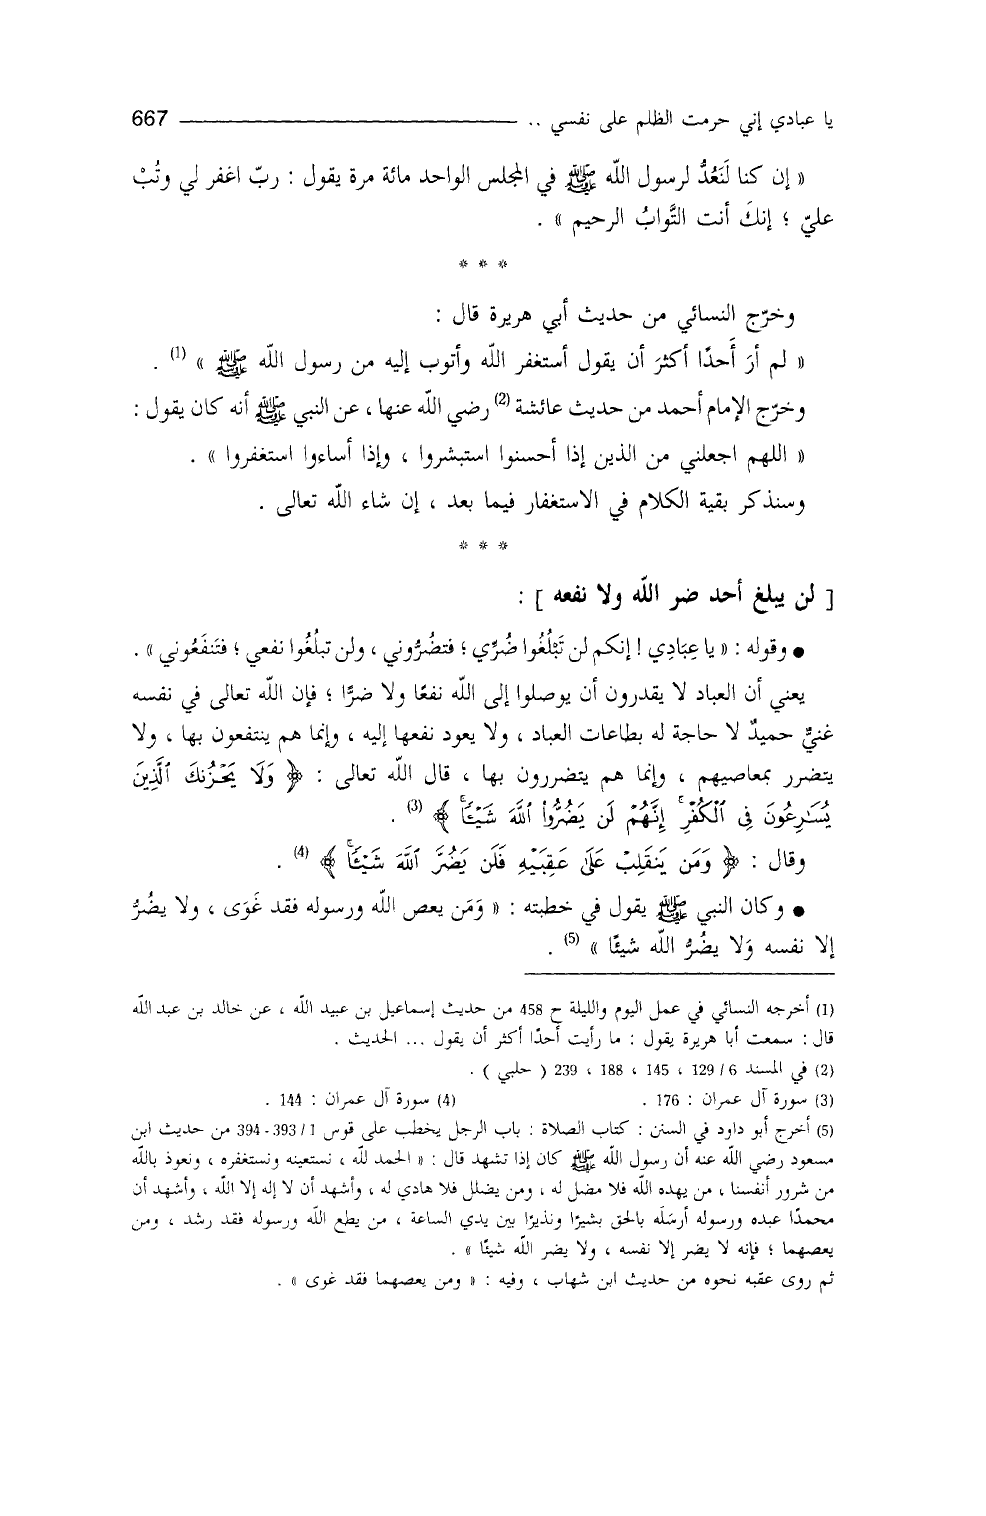 يا عبادي إني حرمت الظلم على نفسي .. 667
« إن كنا لَنَعُدُّ لرسول اللّه ﷺ في المجلس الواحد مائة مرة يقول : ربّ اغفر لي وتُبْ
عليّ ؛ إنكَ أنت التَّوابُ الرحيم » .
* * *
وخرّج النسائي من حديث أبي هريرة قال :
« لم أرَ أَحدًا أكثرَ أن يقول أستغفر اللّه وأتوب إليه من رسول اللّه ﷺ » (1) .
وخرّج الإمام أحمد من حديث عائشة (2) رضي اللّه عنها ، عن النبي ﷺ أنه كان يقول :
« اللهم اجعلني من الذين إذا أحسنوا استبشروا ، وإذا أساءوا استغفروا » .
وسنذكر بقية الكلام في الاستغفار فيما بعد ، إن شاء اللّه تعالى .
* * *
[ لن يبلغ أحد ضر اللّه ولا نفعه ] :
● وقوله : « يا عِبَادِي ! إنكم لن تَبْلُغُوا ضُرِّي ؛ فتضُرُّوني ، ولن تبلُغُوا نفعي ؛ فتَنفَعُوني » .
يعني أن العباد لا يقدرون أن يوصلوا إلى اللّه نفعًا ولا ضرًّا ؛ فإن اللّه تعالى في نفسه
غنيٌّ حميدٌ لا حاجة له بطاعات العباد ، ولا يعود نفعها إليه ، وإنما هم ينتفعون بها ، ولا
يتضرر بمعاصيهم ، وإنما هم يتضررون بها ، قال اللّه تعالى : ﴿ وَلَا يَحْزُنكَ ٱلَّذِينَ
يُسَـٰرِعُونَ فِى ٱلْكُفْرِ ۚ إِنَّهُمْ لَن يَضُرُّوا۟ ٱللَّهَ شَيْـًٔا ۗ ﴾ (3) .
وقال : ﴿ وَمَن يَنقَلِبْ عَلَىٰ عَقِبَيْهِ فَلَن يَضُرَّ ٱللَّهَ شَيْـًٔا ۗ ﴾ (4) .
● وكان النبي ﷺ يقول في خطبته : « وَمَن يعص اللّه ورسوله فقد غَوَى ، ولا يضُرُّ
إلا نفسه وَلا يضُرُّ اللّه شيئًا » (5) .
(1) أخرجه النسائي في عمل اليوم والليلة ح 458 من حديث إسماعيل بن عبيد اللّه ، عن خالد بن عبد اللّه
قال : سمعت أبا هريرة يقول : ما رأيت أحدًا أكثر أن يقول ... الحديث .
(2) في المسند 6 / 129 ، 145 ، 188 ، 239 ( حلبي ) .
(3) سورة آل عمران : 176 . (4) سورة آل عمران : 144 .
(5) أخرج أبو داود في السنن : كتاب الصلاة : باب الرجل يخطب على قوس 1 / 393 - 394 من حديث ابن
مسعود رضي اللّه عنه أن رسول اللّه ﷺ كان إذا تشهد قال : « الحمد للّه ، نستعينه ونستغفره ، ونعوذ باللّه
من شرور أنفسنا ، من يهده اللّه فلا مضل له ، ومن يضلل فلا هادي له ، وأشهد أن لا إله إلا اللّه ، وأشهد أن
محمدًا عبده ورسوله أرسَلَه بالحق بشيرًا ونذيرًا بين يدي الساعة ، من يطع اللّه ورسوله فقد رشد ، ومن
يعصهما ؛ فإنه لا يضر إلا نفسه ، ولا يضر اللّه شيئًا » .
ثم روى عقبه نحوه من حديث ابن شهاب ، وفيه : « ومن يعصهما فقد غوى » .